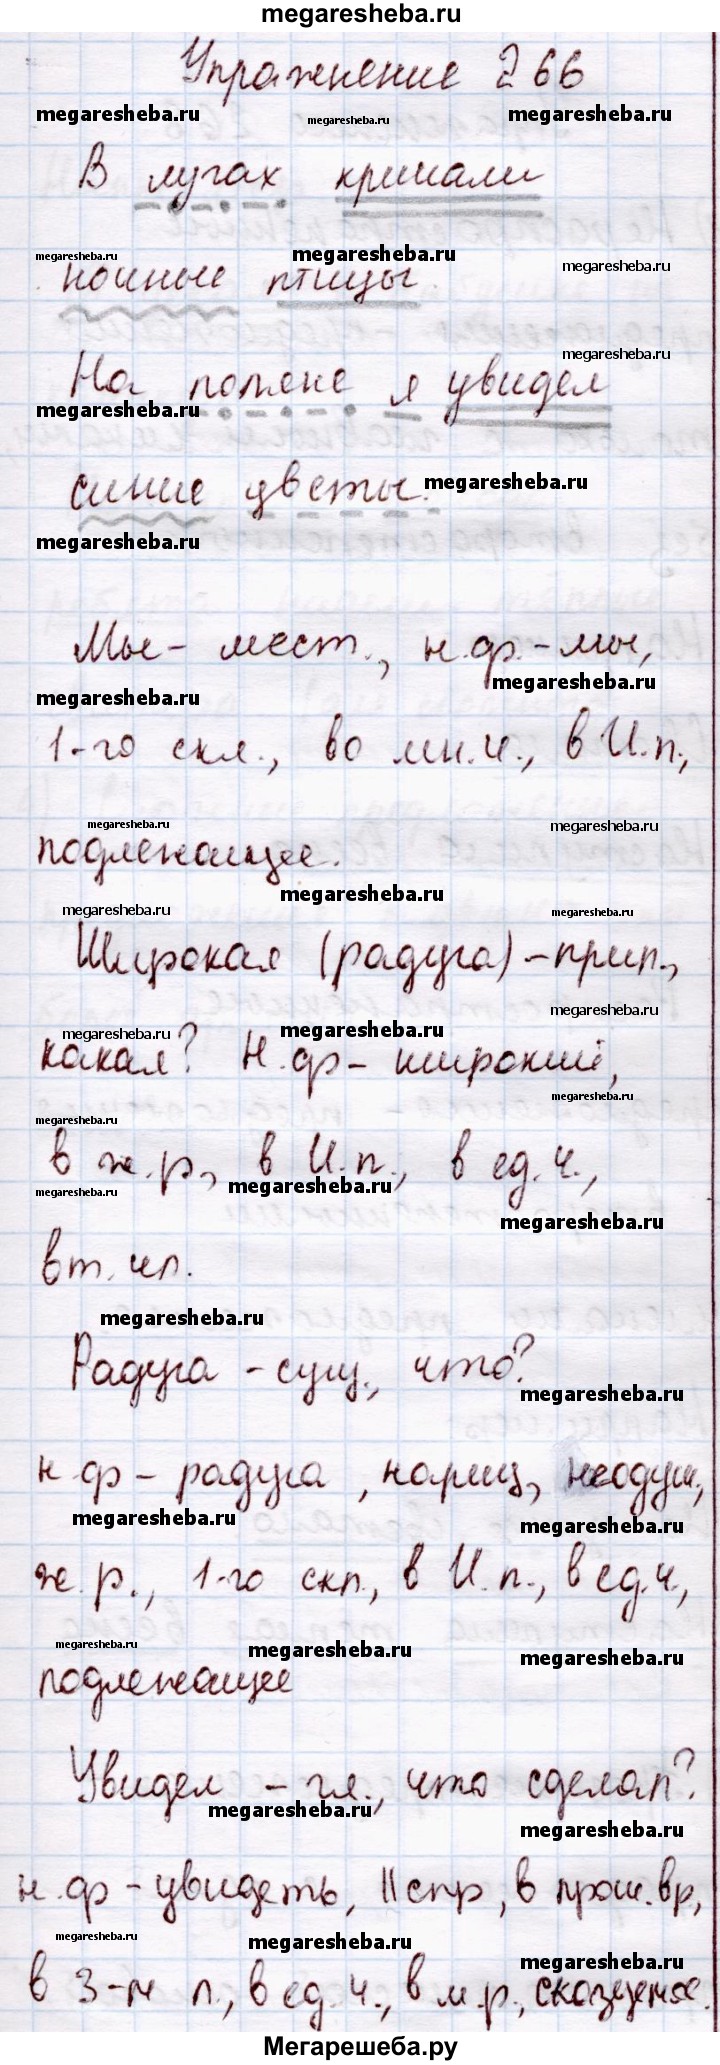 megaresheba.ru
Упражнение 266
megaresheba.ru megaresheba.ru megaresheba.ru
В лугах кричали
megaresheba.ru megaresheba.ru megaresheba.ru
ночные птицы.
megaresheba.ru
На поляне я увидел
megaresheba.ru
синие цветы.
megaresheba.ru
megaresheba.ru
Мы - мест., н.ф. - мы,
megaresheba.ru
megaresheba.ru
1-го скл., во мн.ч., в И.п.,
megaresheba.ru megaresheba.ru
подлежащее.
megaresheba.ru
megaresheba.ru megaresheba.ru
Широкая (радуга) - прил.,
megaresheba.ru
megaresheba.ru megaresheba.ru
какая? Н.ф - широкий,
megaresheba.ru
megaresheba.ru
в ж.р., в И.п., в ед.ч.,
megaresheba.ru megaresheba.ru
megaresheba.ru
вт. чл.
megaresheba.ru
Радуга - сущ., что?
megaresheba.ru
н.ф - радуга, нариц, неодуш,
megaresheba.ru megaresheba.ru
ж.р., 1-го скл., в И.п., в ед.ч.,
megaresheba.ru megaresheba.ru megaresheba.ru
подлежащее
Увидел - гл., что сделал?
megaresheba.ru megaresheba.ru
н.ф - увидеть, II спр, в прош.вр,
megaresheba.ru megaresheba.ru megaresheba.ru
в 3-м л., в ед.ч., в м.р., сказуемое.
Мегарешеба.ру